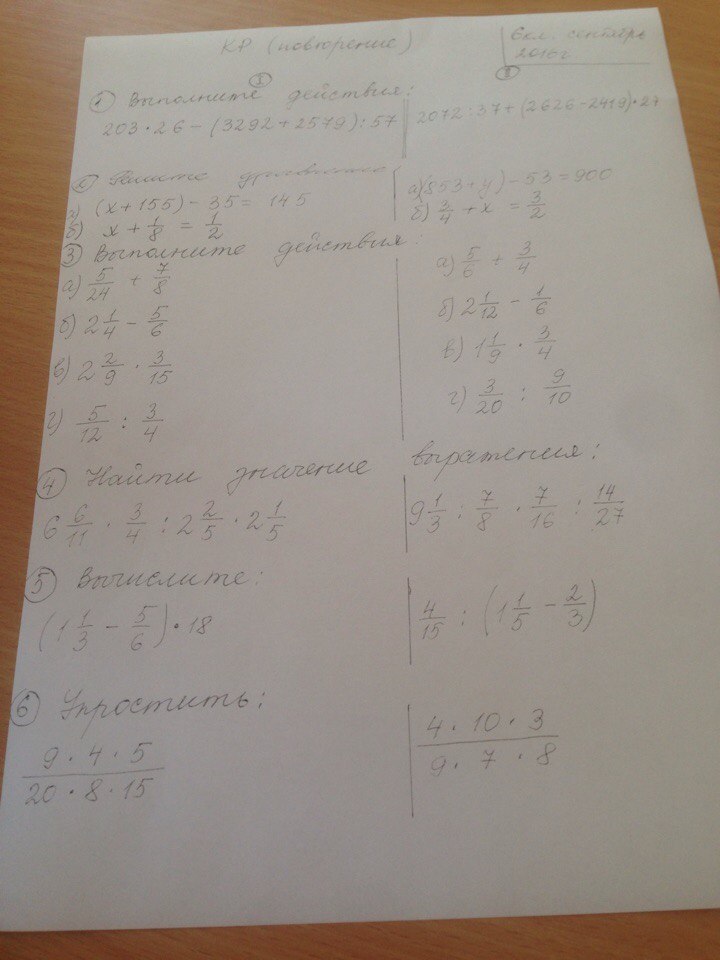 КР (повторение)
6 кл. сентябрь
2016 г.
I II
1 Выполните действия:
203 · 26 − (3292 + 2579) : 57 2072 : 37 + (2626 − 2419) · 27
2 Решите уравнение:
а) (x + 155) − 35 = 145 а) (853 + y) − 53 = 900
б) x + 1/8 = 1/2 б) 3/4 + x = 3/2
3 Выполните действия:
а) 5/24 + 7/8 а) 5/6 + 3/4
б) 2 1/4 − 5/6 б) 2 1/12 − 1/6
в) 2 2/9 · 3/15 в) 1 1/9 · 3/4
г) 5/12 : 3/4 г) 3/20 : 9/10
4 Найти значение выражения:
6 6/11 · 3/4 : 2 2/5 · 2 1/5 9 1/3 : 7/8 · 7/16 : 14/27
5 Вычислите:
(1 1/3 − 5/6) · 18 4/15 : (1 1/5 − 2/3)
6 Упростить:
9 · 4 · 5 / 20 · 8 · 15 4 · 10 · 3 / 9 · 7 · 8